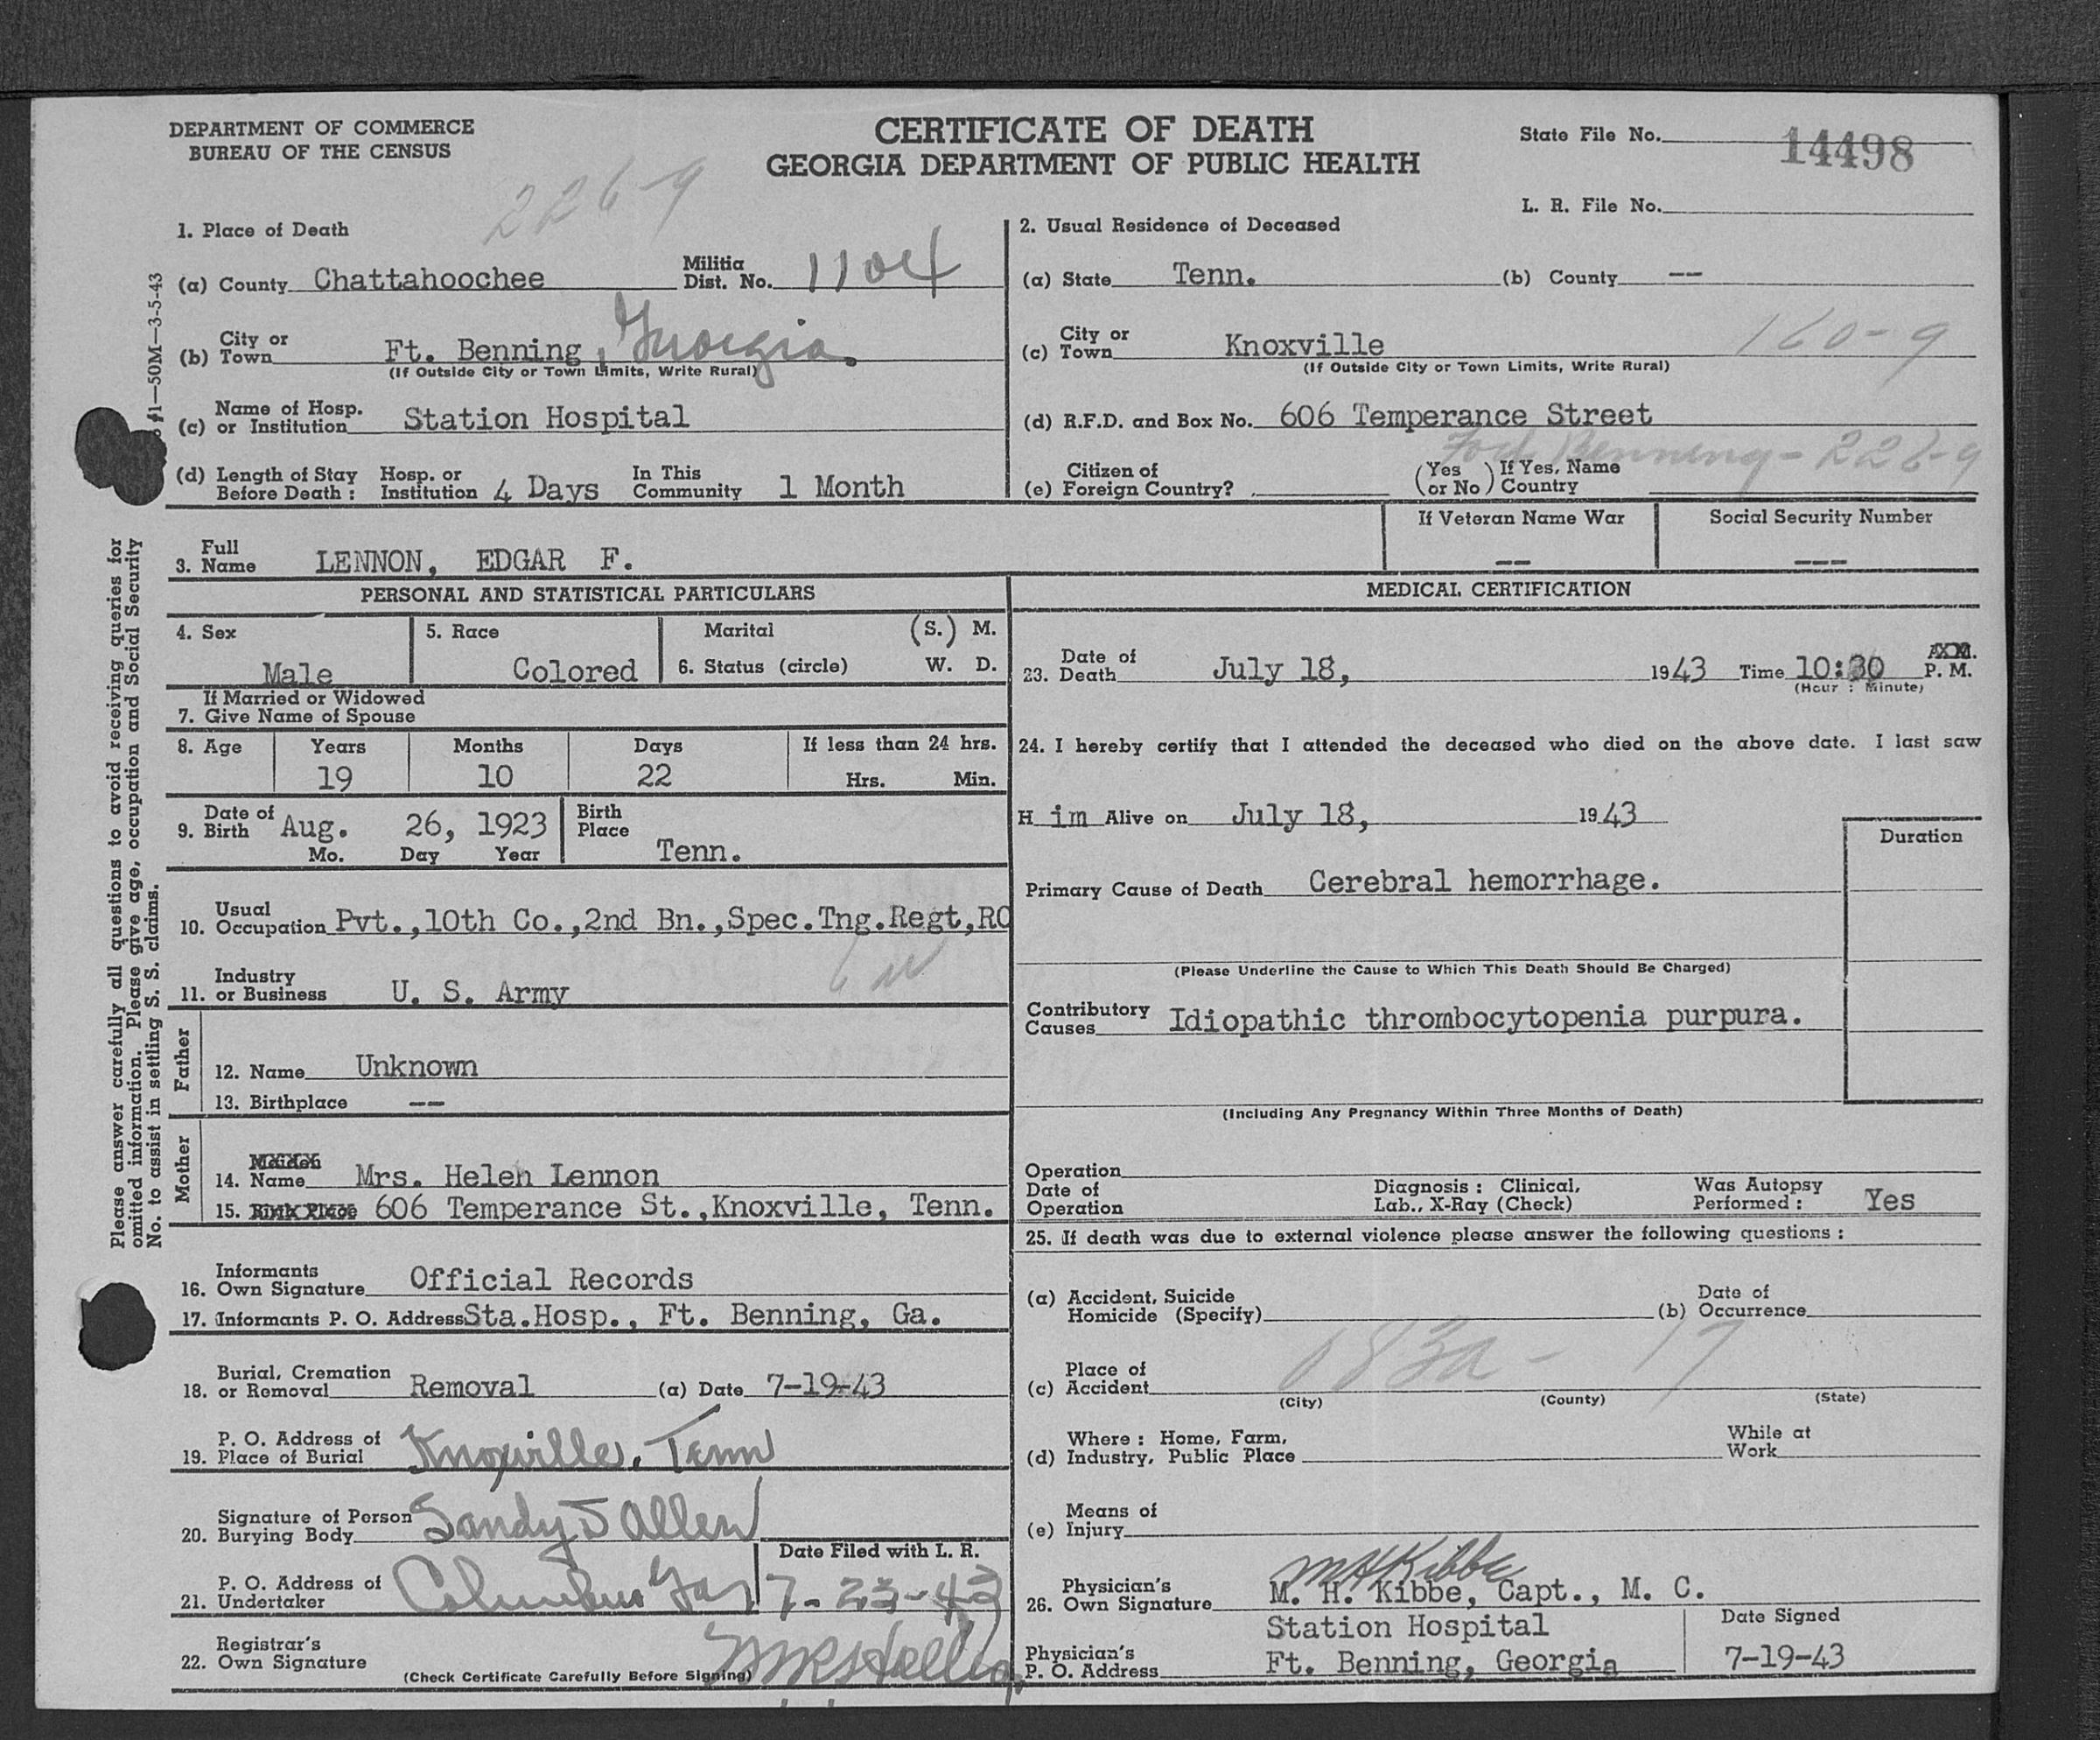 DEPARTMENT OF COMMERCE
BUREAU OF THE CENSUS
CERTIFICATE OF DEATH
GEORGIA DEPARTMENT OF PUBLIC HEALTH
State File No. 14498
L. R. File No.
226-9
1. Place of Death
(a) County Chattahoochee Militia Dist. No. 1104
(b) City or Town Ft. Benning, Georgia.
(If Outside City or Town Limits, Write Rural)
(c) Name of Hosp. or Institution Station Hospital
(d) Length of Stay Before Death: Hosp. or Institution 4 Days In This Community 1 Month
2. Usual Residence of Deceased
(a) State Tenn. (b) County --
(c) City or Town Knoxville 160-9
(If Outside City or Town Limits, Write Rural)
(d) R.F.D. and Box No. 606 Temperance Street
Benning - 226-9
(e) Citizen of Foreign Country? (Yes or No) If Yes, Name Country
3. Full Name LENNON, EDGAR F.
If Veteran Name War --
Social Security Number ---
1—50M—3-5-43
Please answer carefully all questions to avoid receiving queries for
omitted information. Please give age, occupation and Social Security
No. to assist in settling S. S. claims.
PERSONAL AND STATISTICAL PARTICULARS
4. Sex Male
5. Race Colored
6. Marital Status (circle) (S.) M. W. D.
7. If Married or Widowed Give Name of Spouse
8. Age Years 19 Months 10 Days 22 If less than 24 hrs. Hrs. Min.
9. Date of Birth Aug. 26, 1923
Mo. Day Year
Birth Place Tenn.
10. Usual Occupation Pvt.,10th Co.,2nd Bn.,Spec.Tng.Regt,RC
11. Industry or Business U. S. Army
Father
12. Name Unknown
13. Birthplace --
Mother
14. Maiden Name Mrs. Helen Lennon
15. Birth Place 606 Temperance St.,Knoxville, Tenn.
16. Informants Own Signature Official Records
17. Informants P. O. Address Sta.Hosp., Ft. Benning, Ga.
18. Burial, Cremation or Removal Removal (a) Date 7-19-43
19. P. O. Address of Place of Burial Knoxville, Tenn
20. Signature of Person Burying Body Sandy J Allen
21. P. O. Address of Undertaker Columbus Ga,
Date Filed with L. R. 7-23-43
22. Registrar's Own Signature
(Check Certificate Carefully Before Signing)
MEDICAL CERTIFICATION
23. Date of Death July 18, 1943 Time 10:30 P. M.
(Hour : Minute)
24. I hereby certify that I attended the deceased who died on the above date. I last saw
H im Alive on July 18, 1943
Duration
Primary Cause of Death Cerebral hemorrhage.
(Please Underline the Cause to Which This Death Should Be Charged)
Contributory Causes Idiopathic thrombocytopenia purpura.
(Including Any Pregnancy Within Three Months of Death)
Operation
Date of Operation
Diagnosis: Clinical, Lab., X-Ray (Check)
Was Autopsy Performed: Yes
25. If death was due to external violence please answer the following questions:
(a) Accident, Suicide Homicide (Specify) (b) Date of Occurrence
183a - 17
(c) Place of Accident
(City) (County) (State)
(d) Where: Home, Farm, Industry, Public Place While at Work
(e) Means of Injury
M H Kibbe
26. Physician's Own Signature M. H. Kibbe, Capt., M. C.
Station Hospital
Physician's P. O. Address Ft. Benning, Georgia
Date Signed 7-19-43